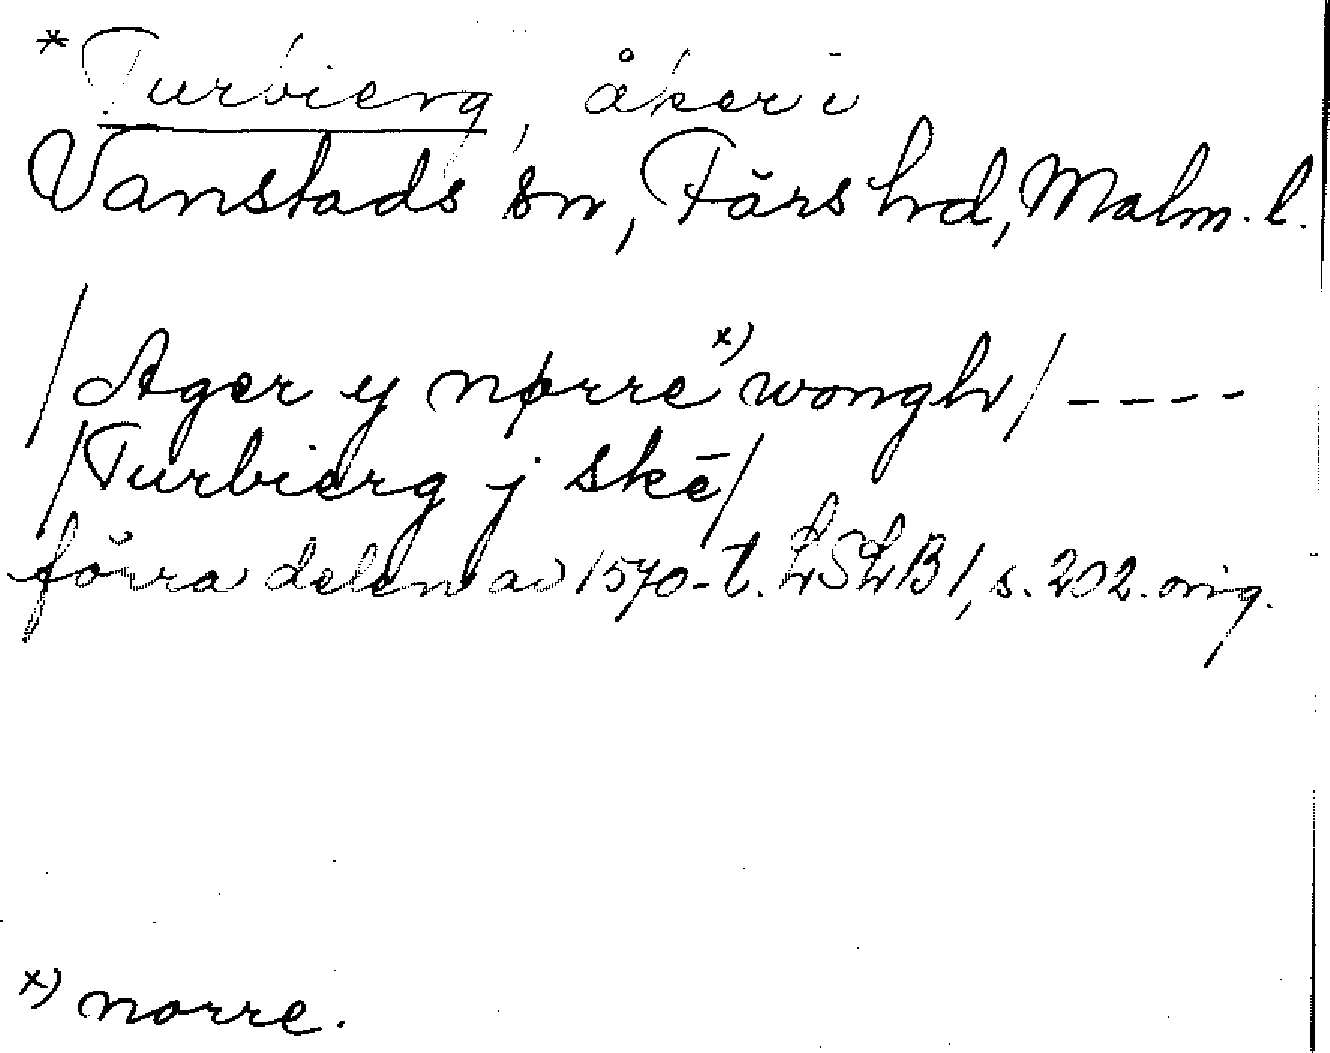 * Turbierg, åker i
Vanstads sn, Färs hd, Malm. l.
/Ager y nørre x) wongh/ ----
/Turbierg j skē/
förra delen av 1570-t. LSLB 1, s. 202. orig.
x) norre.